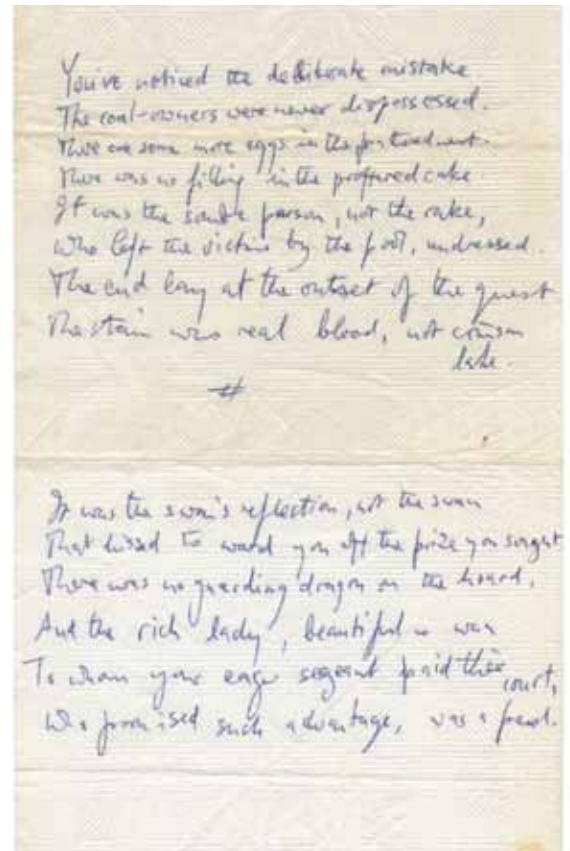 You've noticed the deliberate mistake.
The coal-owners were never dispossessed.
There are some more eggs in the
There was no filling in the proffered cake.
It was the parson, not the rake,
Who left the victim by the pool, undressed.
The end lay at the outset of the quest
The stain was real blood, not crimson
lake.
It was the swan's reflection, not the swan
That hissed to ward you off the prize you sought
There was no guarding dragon on the hoard,
And the rich lady, beautiful wan
To whom your eager paid their
court,
Who promised such advantage, was a fraud.